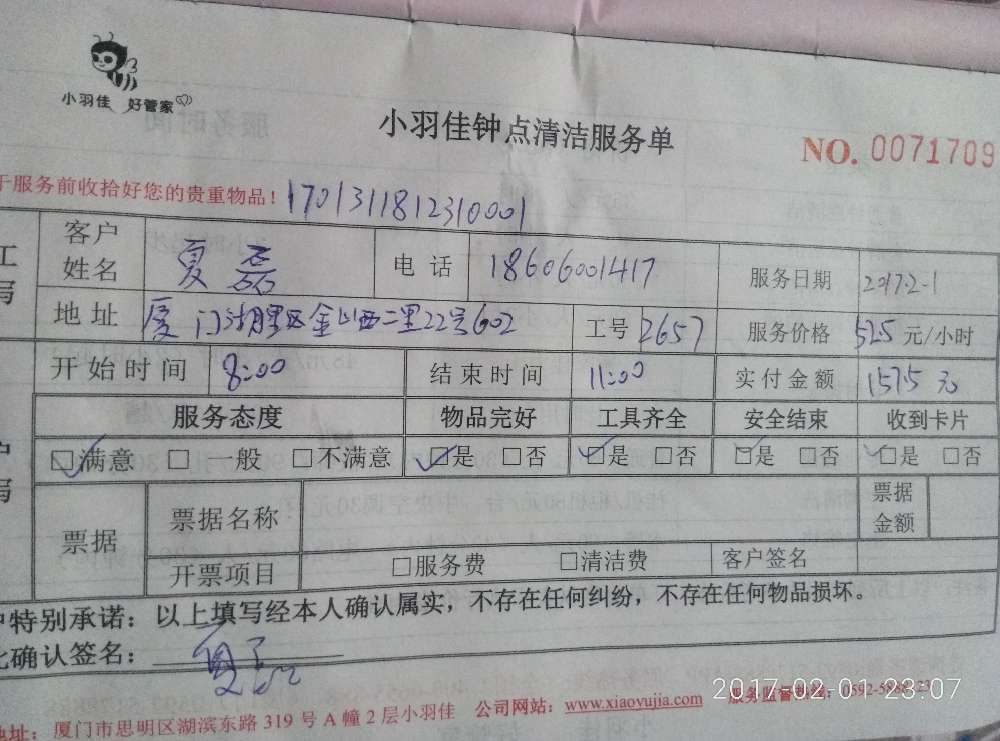 小羽佳 好管家
小羽佳钟点清洁服务单
NO. 0071709
于服务前收拾好您的贵重物品！ 1701311812310001
客户姓名 夏磊 电话 18606001417 服务日期 2017.2-1
地址 厦门湖里区金山西二里22号602 工号 2657 服务价格 52.5 元/小时
开始时间 8:00 结束时间 11:00 实付金额 157.5 元
服务态度 物品完好 工具齐全 安全结束 收到卡片
☑满意 □一般 □不满意 ☑是 □否 ☑是 □否 ☑是 □否 ☑是 □否
票据 票据名称 票据金额
开票项目 □服务费 □清洁费 客户签名
户特别承诺：以上填写经本人确认属实，不存在任何纠纷，不存在任何物品损坏。
此确认签名：
地址：厦门市思明区湖滨东路 319 号 A 幢 2 层小羽佳 公司网站：www.xiaoyujia.com 服务监督热线：0592-
2017-02-01 23:07